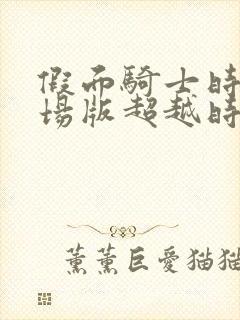 假面騎士時
場版超越時
薰薰巨愛猫猫